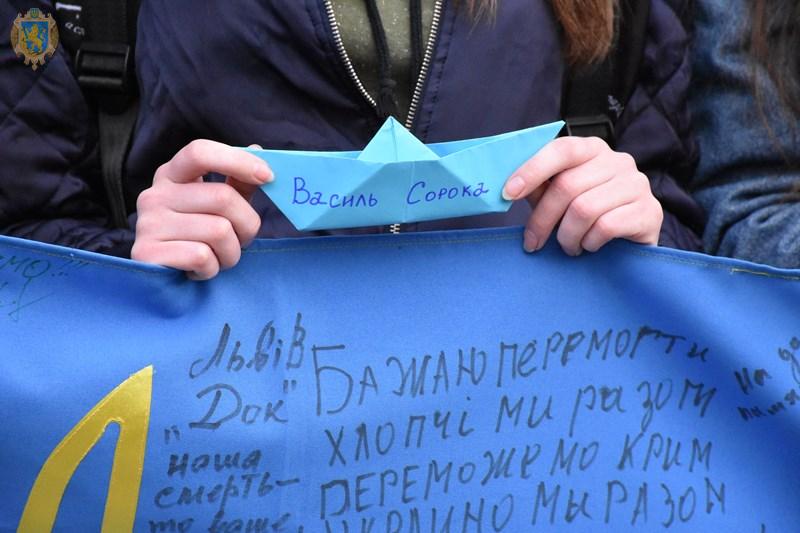 Василь Сорока
Львів
„Док"
наша
смерть-
то ваше
Бажаю перемогти
хлопчі ми разом
переможемо Крим
Украино мы разом